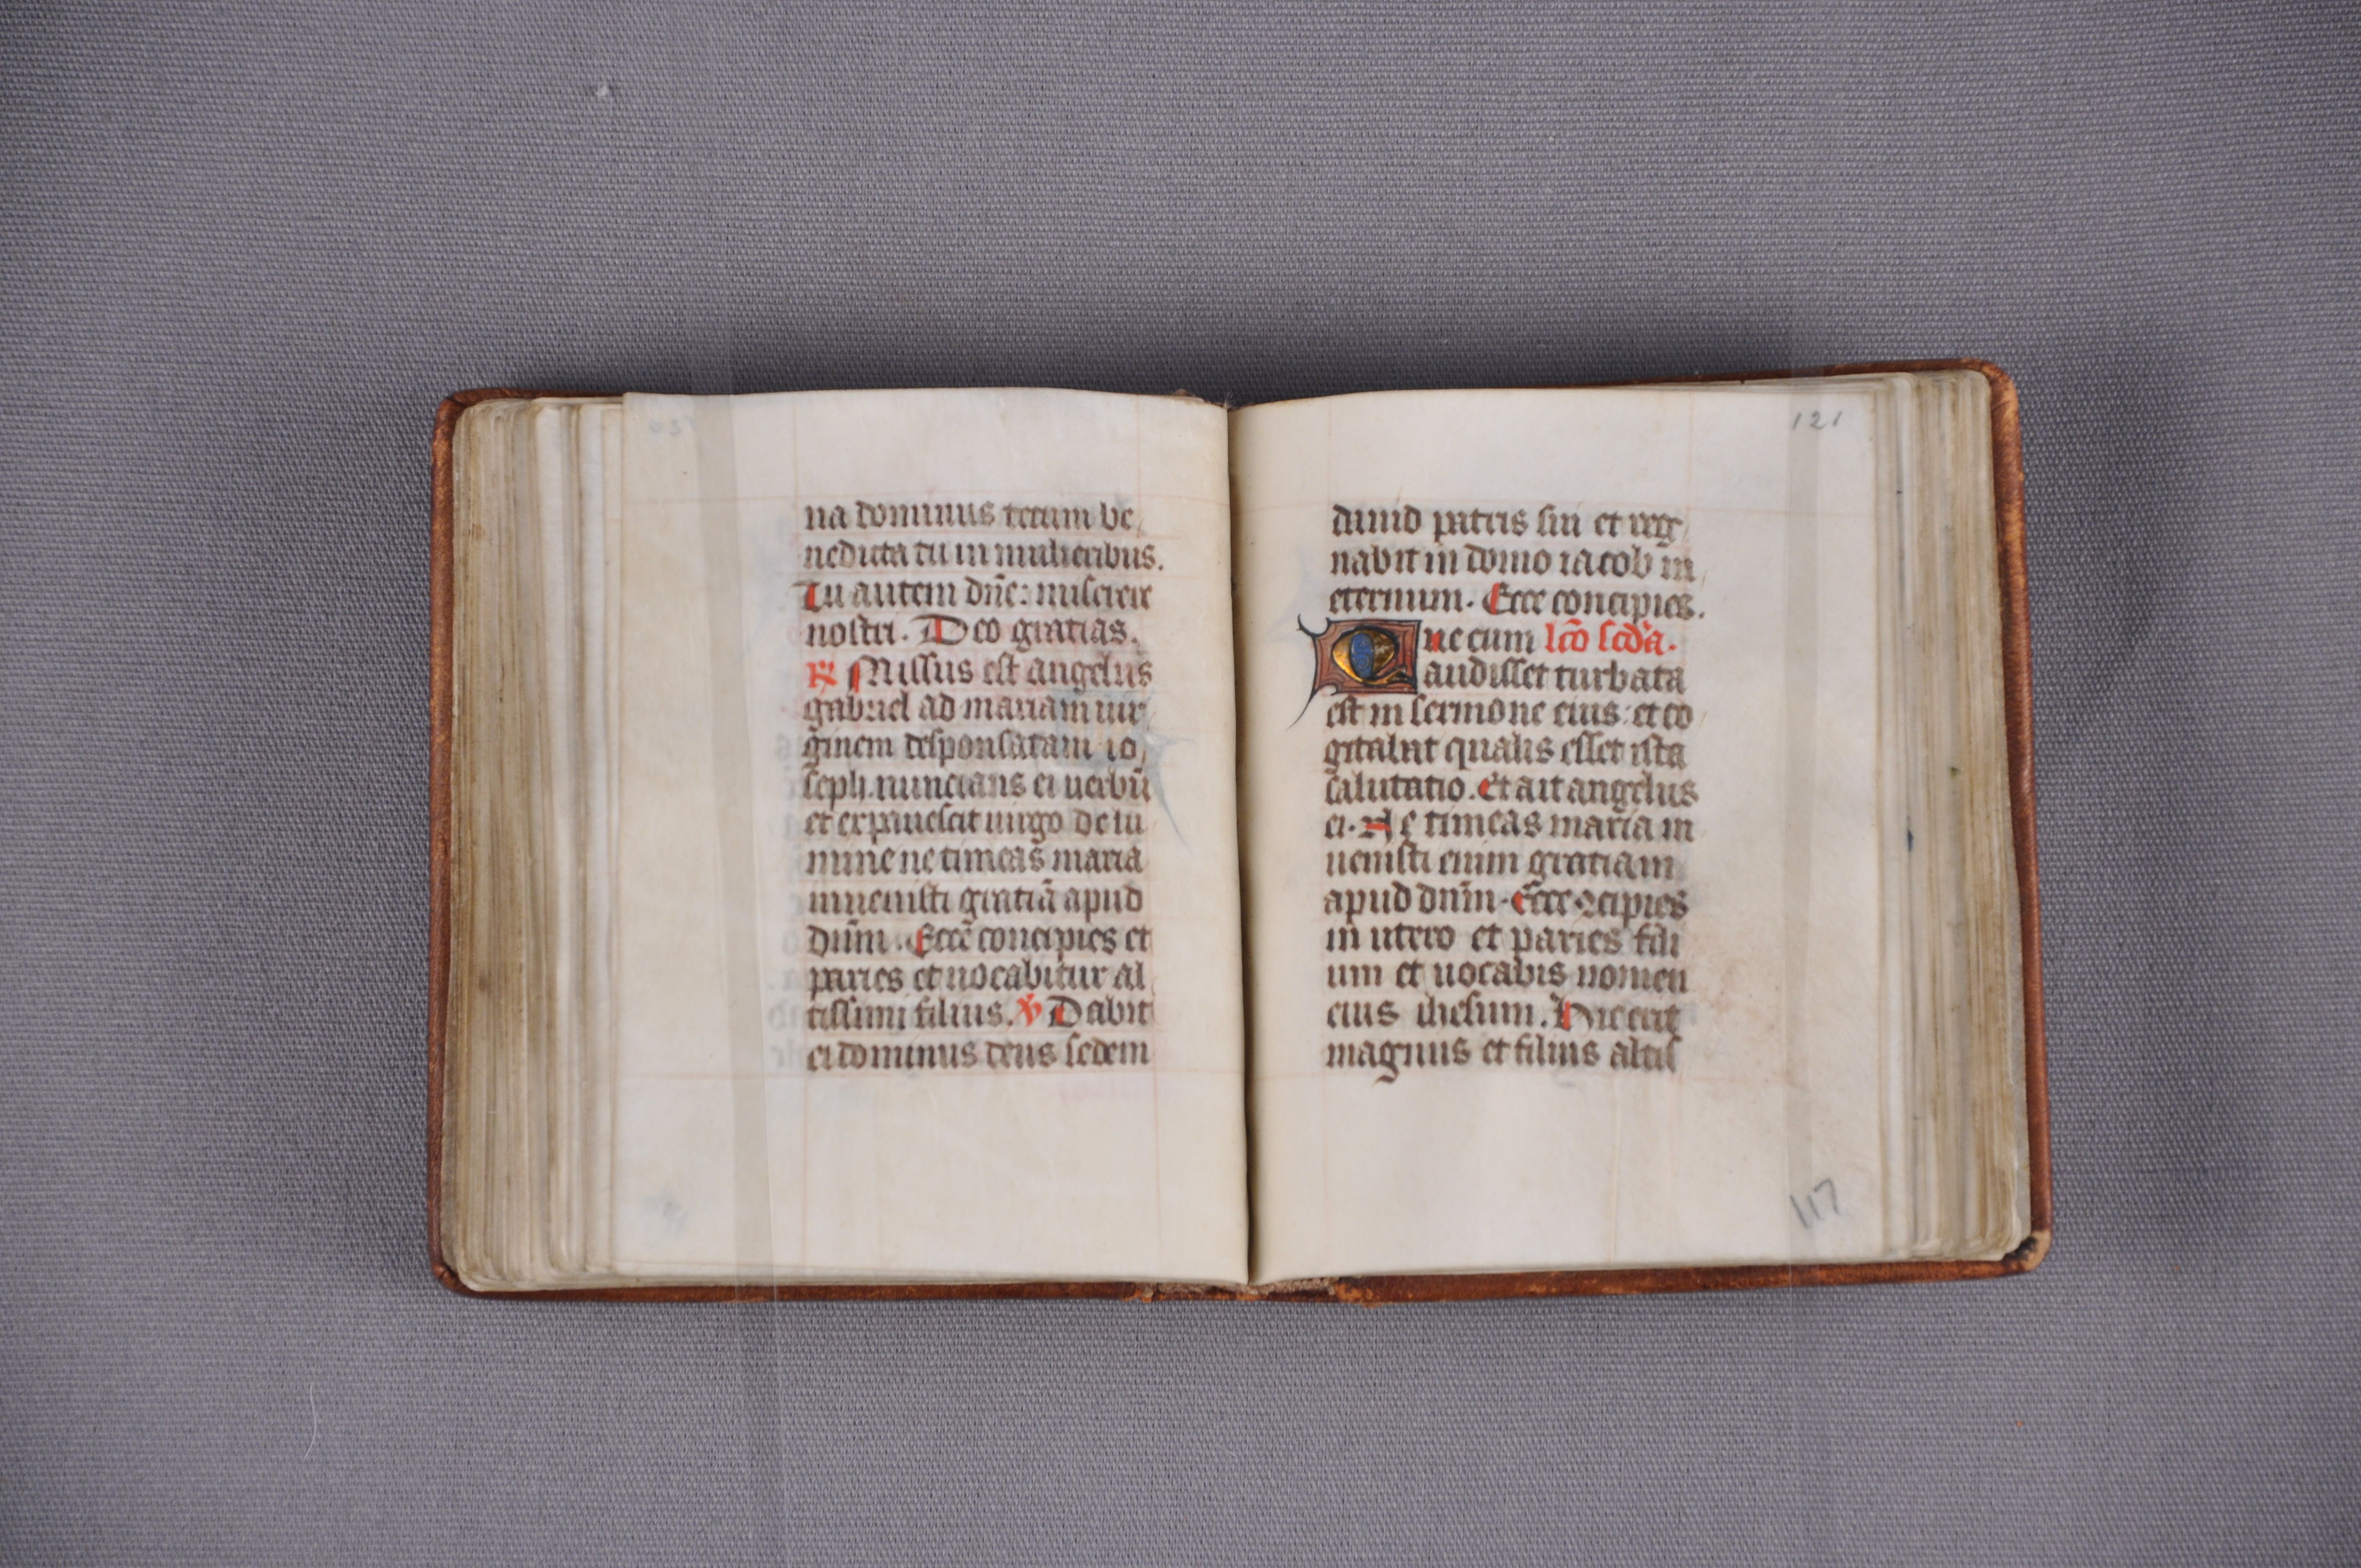 na dominus tecum be
nedicta tu in mulieribus.
Tu autem dn̄e: miserere
nostri. Deo gratias.
R Missus est angelus
gabriel ad mariam uir
ginem desponsatam io
seph. nuncians ei uerbū
et expauescit uirgo de lu
mine ne timeas maria
inuenisti gratiā apud
dūm. Ecce concipies et
paries et uocabitur al
tissimi filius. V Dabit
ei dominus deus sedem
121
dauid patris sui et reg
nabit in domo iacob in
eternum. Ecce concipies.
Que cum lcō scd̄a.
audisset turbata
est in sermone eius: et co
gitabat qualis esset ista
salutatio. Et ait angelus
ei. Ne timeas maria in
uenisti enim gratiam
apud dnm̄. Ecce ꝯcipies
in utero et paries fili
um et uocabis nomen
eius ihesum. Hic erit
magnus et filius altis
117